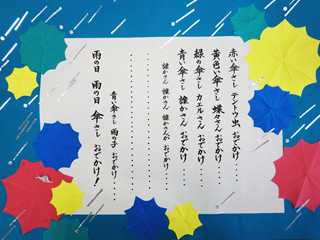 赤い傘さし テントウ虫 おでかけ・・・・
黄色い傘さし 蝶々さん おでかけ・・・・
緑の傘さし カエルさん おでかけ・・・・
青い傘さし 誰かさん おでかけ・・・・
・・・・・・・・・・・・
誰かさん 誰かさん 誰かさんが おでかけ・・・・
・・・・・・・・・・・・
青い傘さし 雨の子 おでかけ・・・・
雨の日 雨の日 傘さし おでかけ！